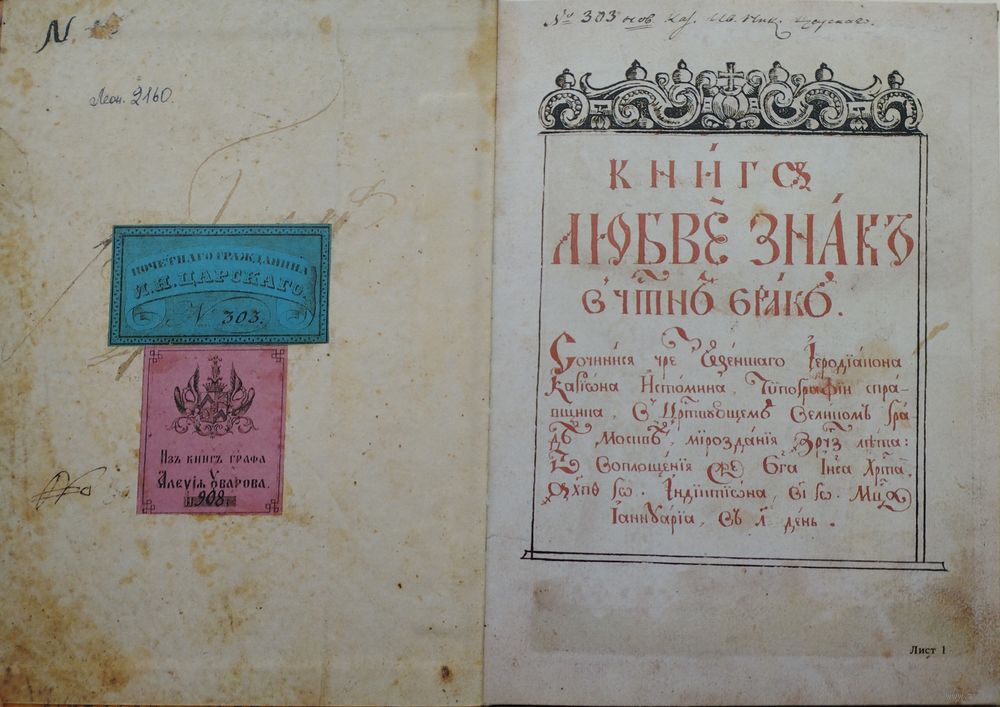 N
Леон. 2160.
ПОЧЕТНАГО ГРАЖДАНИНА
И.Н. ЦАРСКАГО.
N 303.
Изъ книгъ графа
Алеѯія Ѹварова.
908
№ 303 нов. Кат. Ив. Ник. Царскаго.
КНИГА
ЛЮБВЕ ЗНАКЪ
В ЧТНѢ БРАКѢ.
Сочинися чре
Каріѡна Истомина, Тѵпографіи спра-
вщика, В Цртвующемъ Великомъ гра
дѣ Москвѣ, мірозданія лѣта:
Воплощенія Бга Іиса Хрта
Індіктіѡна, Мца
Іаннꙋаріа, въ л день.
Лист 1